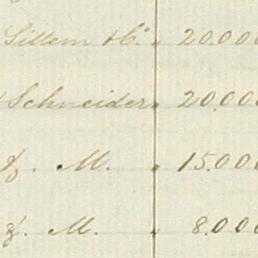 Sillem & Co. " 20.000
Schneider " 20.000
& . M. " 15.000
& . M. " 8.000